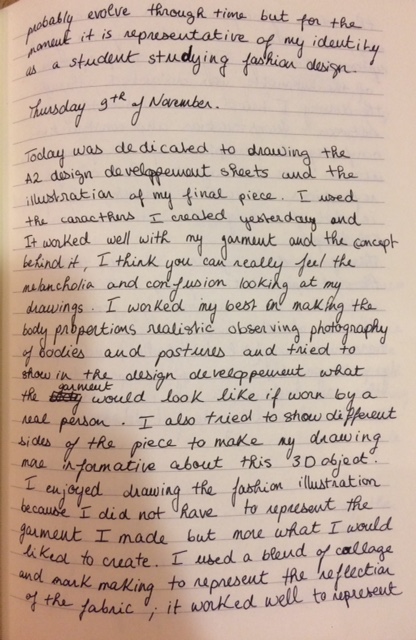 probably evolve through time but for the
moment it is representative of my identity
as a student studying fashion design.
Thursday 9th of November.
Today was dedicated to drawing the
A2 design developpement sheets and the
illustration of my final piece. I used
the caracthers I created yesterday and
It worked well with my garment and the concept
behind it, I think you can really feel the
melancholia and confusion looking at my
drawings. I worked my best in making the
body proportions realistic observing photography
of bodies and postures and tried to
show in the design developpement what
the garment would look like if worn by a
real person. I also tried to show different
sides of the piece to make my drawing
more informative about this 3D object.
I enjoyed drawing the fashion illustration
because I did not have to represent the
garment I made but more what I would
liked to create. I used a blend of collage
and mark making to represent the reflection
of the fabric; it worked well to represent